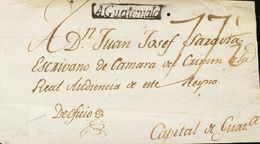 A Guatemala
A Dn. Juan Josef Zaravia
Escrivano de Camara del Crimen de la
Real Audiencia de este Reyno
De oficio
Capital de Guat.a